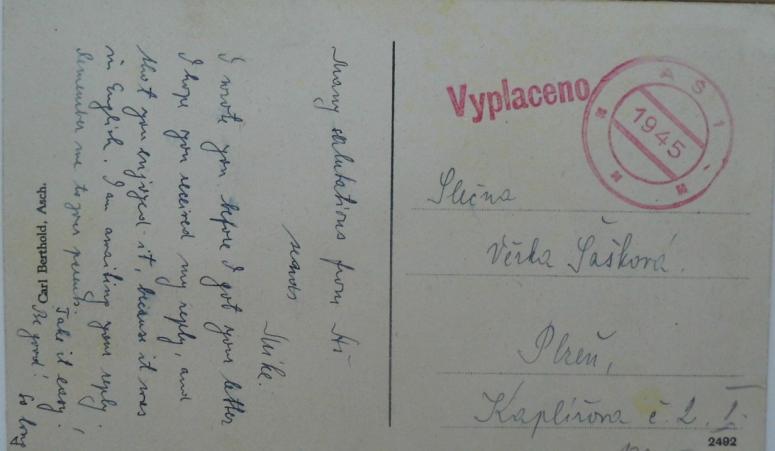 Many salutations from Aš
sends
Mike.
I wrote you before I got your letter
I hope you received my reply, and
that you enjoyed it, because it was
in English. I am awaiting your reply.
Remember me to your parents.
Take it easy!
Be good! So long
Carl Berthold, Asch.
Vyplaceno
AŠ 1
1945
Slečna
Věrka Šašková.
Plzeň,
Kaplířova č. 2. I.
2492